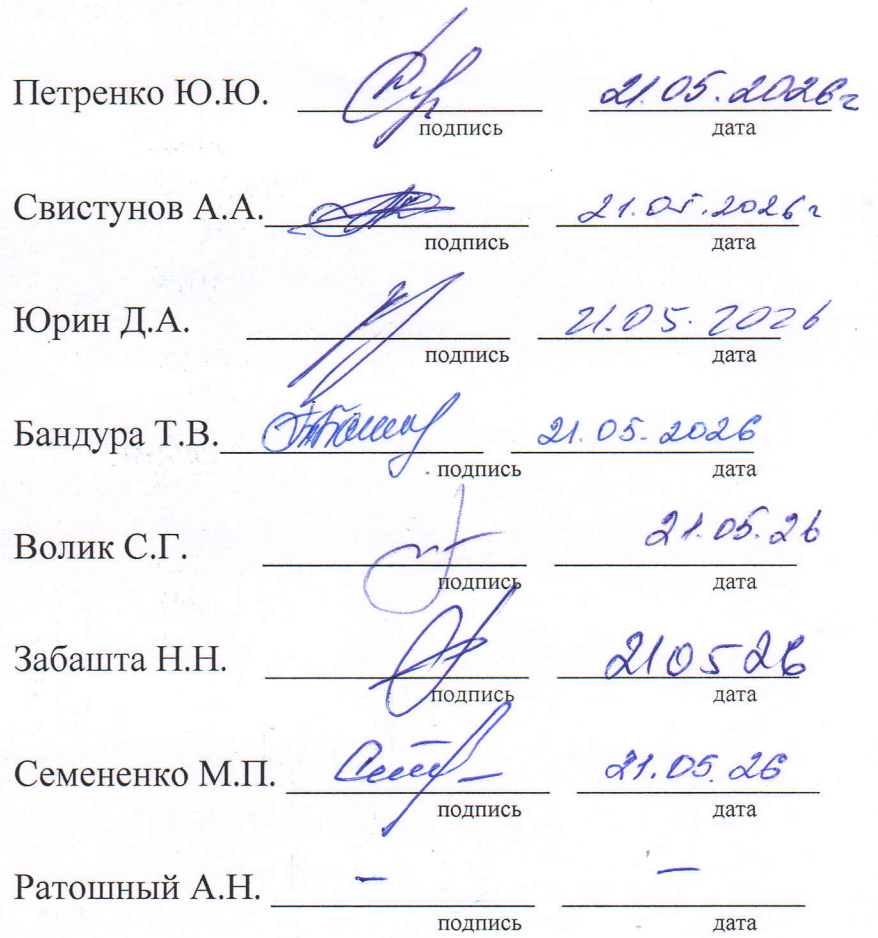 Петренко Ю.Ю. 21.05.2026г
подпись дата
Свистунов А.А. 21.05.2026г
подпись дата
Юрин Д.А. 21.05.2026
подпись дата
Бандура Т.В. 21.05.2026
подпись дата
Волик С.Г. 21.05.26
подпись дата
Забашта Н.Н. 210526
подпись дата
Семененко М.П. 21.05.26
подпись дата
Ратошный А.Н. – –
подпись дата